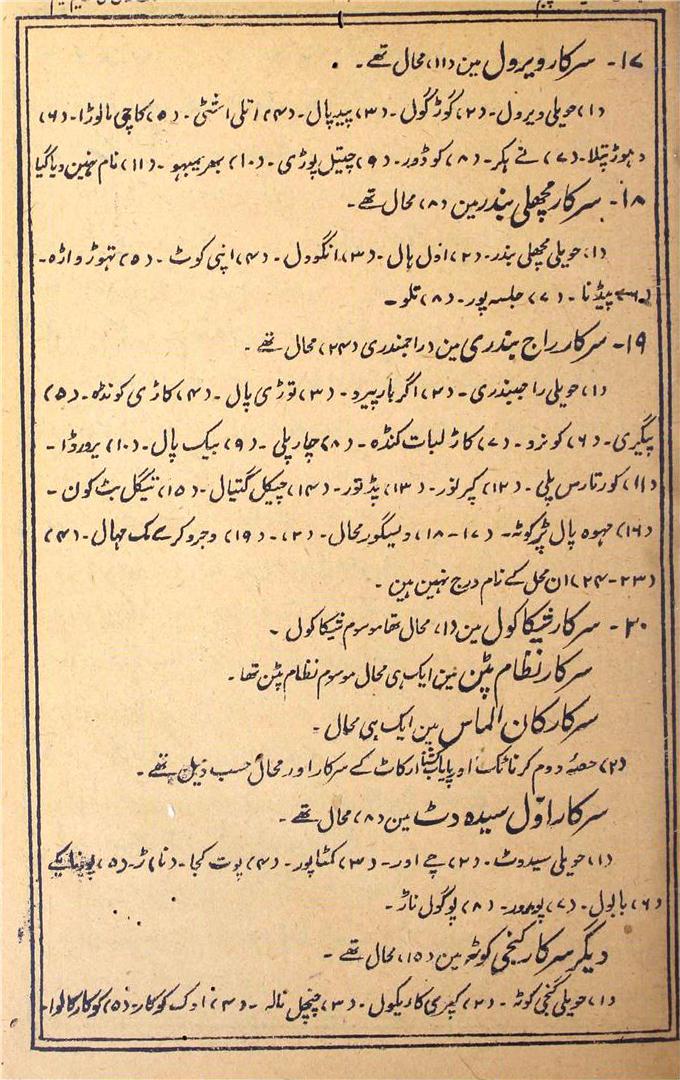 ۱۷۔ سرکار ویرول مین (۱۱) محال تھے۔
(۱) حویلی ویرول۔ (۲) کوڑ گول۔ (۳) پیپال۔ (۴) اتلی اشٹی۔ (۵) کاچی مالوڑا۔ (۶)
دہوڑ پتلا۔ (۷) نے ہکر۔ (۸) کو ڈور۔ (۹) چیتل پوڑی۔ (۱۰) بھر یمبھو۔ (۱۱) نام نہین دیا گیا
۱۸۔ سرکار مچھلی بندر مین (۸) محال تھے۔
(۱) حویلی مچھلی بندر۔ (۲) اول ہال۔ (۳) انگوول۔ (۴) اپنی کوٹ۔ (۵) تہوڑ واڑہ۔
(۶) پیڈنا۔ (۷) جلسہ پور۔ (۸) تلو۔
۱۹۔ سرکار راج بندری مین (راجمندری (۲۴) محال تھے۔
(۱) حویلی راجبندری۔ (۲) اگر بار پیرو۔ (۳) توڑی پال۔ (۴) کاڑی کونڈہ۔ (۵)
پیگیری۔ (۶) کونرو۔ (۷) کاڑ لبات کنڈہ۔ (۸) چار پلی۔ (۹) بیک پال۔ (۱۰) یرورڈا۔
(۱۱) کورتارس پلی۔ (۱۲) کپر نور۔ (۱۳) پڈ تور۔ (۱۴) چیکل گتیال۔ (۱۵) تیگل بٹ کون۔
(۱۶) مہوہ پال ٹرکوٹہ۔ (۱۷-۱۸) ویسگور محال۔ (۲)۔ (۱۹) وجرو کرے مک مہال۔ (۴)
(۲۳-۲۴) ان محل کے نام درج نہین ہین۔
۲۰۔ سرکار شیکا کول مین (۱) محال تھا موسوم شیکا کول۔
سرکار نظام پٹن مین ایک ہی محال موسوم نظام پٹن تھا۔
سرکار کان الماس مین ایک ہی محال۔
(۲) حصۂ دوم کرناٹک او پایاب گھاٹ ارکاٹ کے سرکار اور محال حسب ذیل تھے۔
سرکار اوّل سیدہ وٹ مین (۸) محال تھے۔
(۱) حویلی سیدوٹ۔ (۲) چے اور۔ (۳) کمٹا پور۔ (۴) پوت کجا۔ (ناڑ۔ (۵)
(۶) بابول۔ (۷) پورور۔ (۸) پوگول ناڑ۔
دیگر سرکار کنجی کوٹہ مین (۱۵) محال تھے۔
(۱) حویلی گنجی کوٹہ۔ (۲) کپری کاریکول۔ (۳) چنچل نالہ۔ (۴) اوک کوکار۔ (۵) کوکار کالوا۔